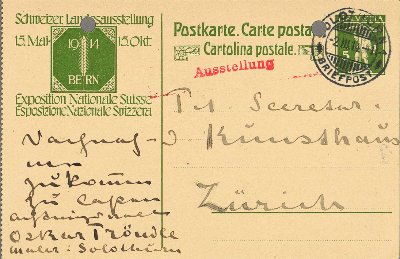 Schweizer. Landesausstellung
15. Mai 15. Okt.
1914
BERN
Exposition Nationale Suisse
Esposizione Nazionale Svizzera
Postkarte. Carte posta
Cartolina postale.
HELVETIA
BRIEFPOST
Ausstellung
Tit. Secretar.
Kunsthaus
Zürich
zukommen
zu lassen
Oskar Tröndle
maler. Solothurn